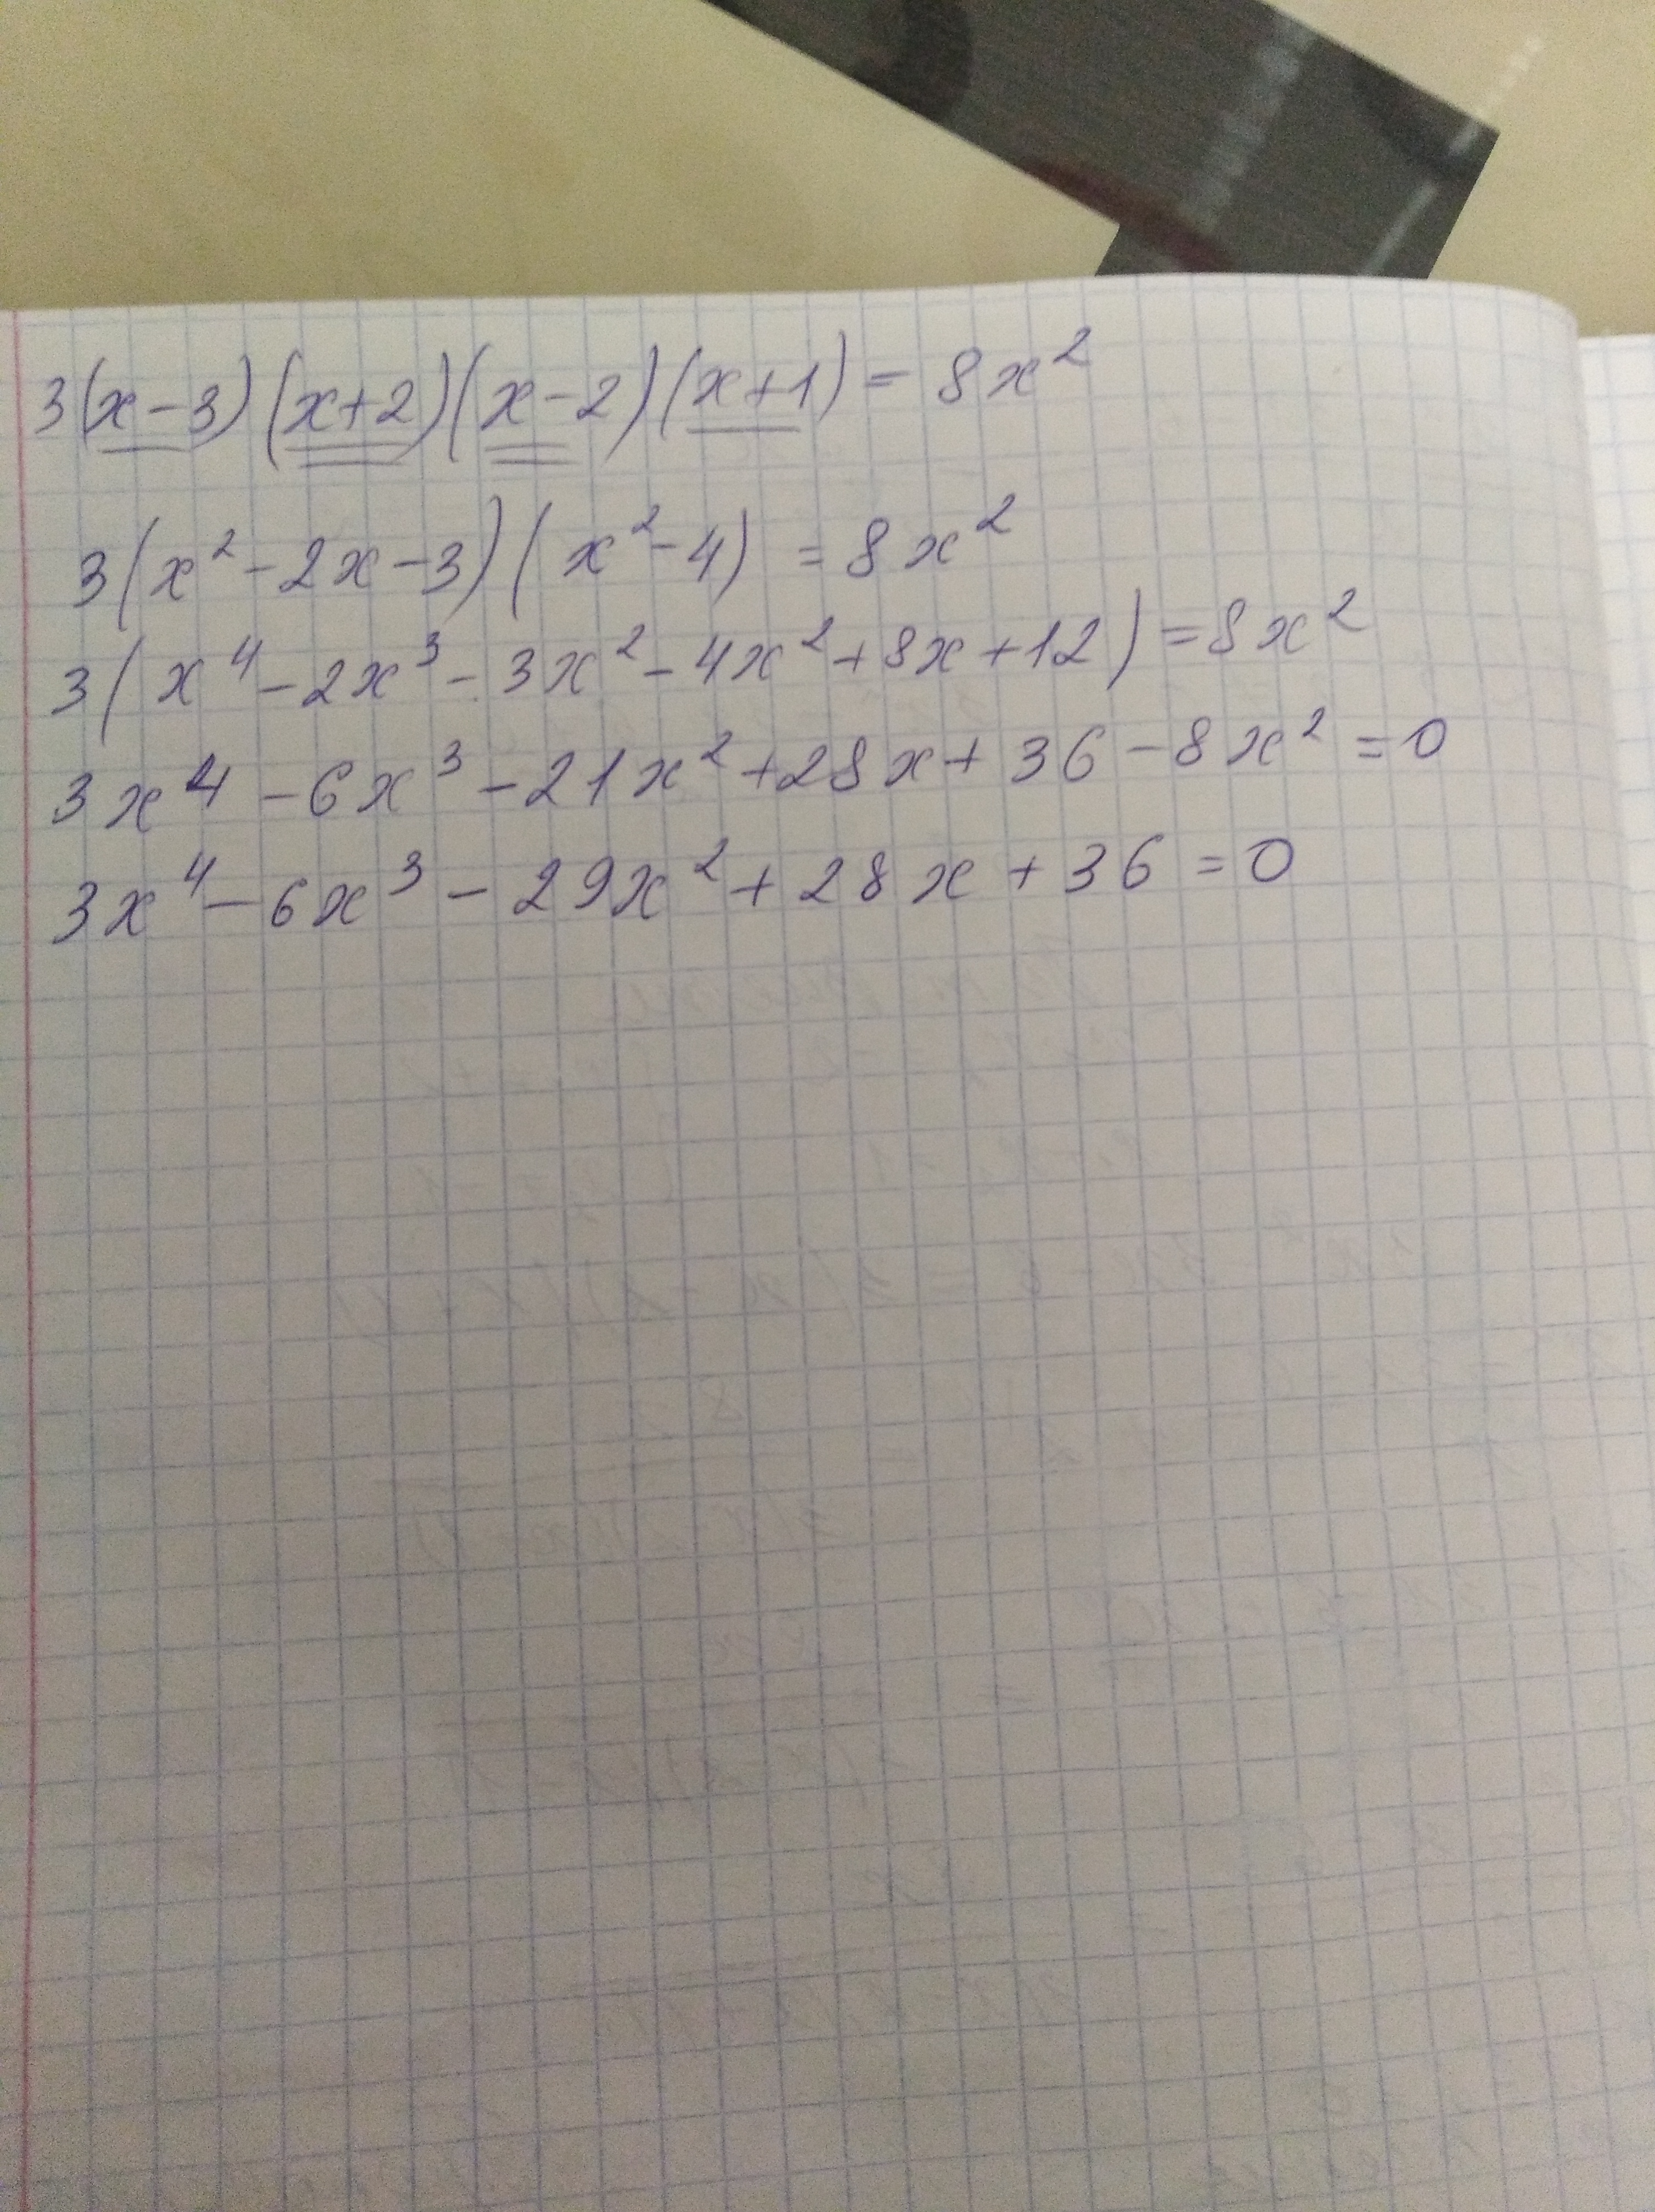 3(x-3)(x+2)(x-2)(x+1)=8x²
3(x²-2x-3)(x²-4)=8x²
3(x⁴-2x³-3x²-4x²+8x+12)=8x²
3x⁴-6x³-21x²+28x+36-8x²=0
3x⁴-6x³-29x²+28x+36=0